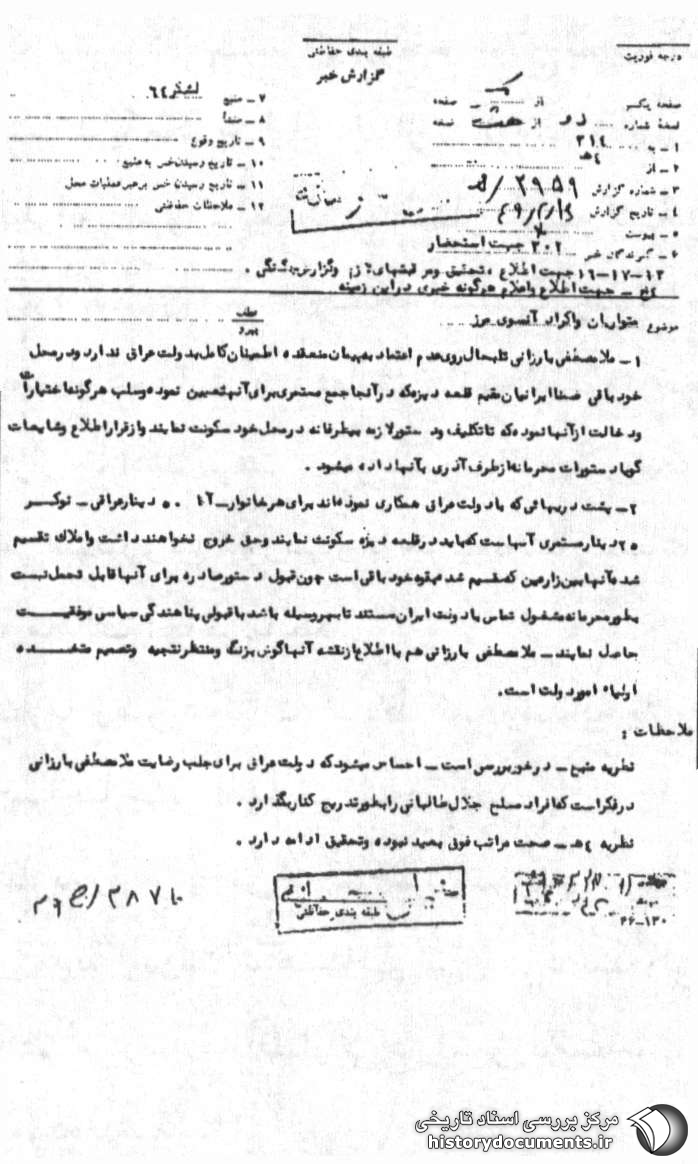 درجه فوریت
طبقه بندی حفاظتی
گزارش خبر
صفحه یکم از یک صفحه
نسخه شماره دو از هشت نسخه
۱ ـ به ۳۱۴
۲ ـ از ۴هـ
۳ ـ شماره گزارش ۲۹۵۹/هـ
۴ ـ تاریخ گزارش
۵ ـ پیوست
۶ ـ گیرندگان خبر ۳۰۲ جهت استحضار
۷ ـ منبع لشکر ۶۴
۸ ـ منشأ
۹ ـ تاریخ وقوع
۱۰ ـ تاریخ رسیدن خبر به منبع
۱۱ ـ تاریخ رسیدن خبر برهبر عملیات محل
۱۲ ـ ملاحظات حفاظتی
۱۳-۱۷-۱۶ جهت اطلاع ، تحقیق
جهت اطلاع واعلام هرگونه خبری در این زمینه
موضوع متواریان واکراد آنسوی مرز
عطف
پیرو
۱ ـ ملامصطفی بارزانی تابحال روی عدم اعتماد به پیمان منعقده اطمینان کامل بدولت عراق ندارد ودر محل
خود باقی ضمنا ایرانیان مقیم قلعه دیزه که در آنجا جمع مستمری برای آنها تعیین نموده وسلب هرگونه اختیارات
ودخالت از آنها نموده که تا تکلیف ود ستور لازمه بیطرفانه در محل خود سکونت نمایند واز قرار اطلاع وشایعات
گویا دستورات محرمانه از طرف آذری بآنها داده میشود .
۲ ـ پشت دریهائی که با دولت عراق همکاری نموده‌اند برای هر خانوار ـ آغا ۵۰ دینار عراقی ـ نوکر
۲۵ دینار مستمری آنها است که باید در قلعه دیزه سکونت نمایند وحق خروج نخواهند داشت واملاک تقسیم
شده آنها بین زارعین که تقسیم شده بقوه خود باقی است چون قبول دستور صادره برای آنها قابل تحمل نیست
بطور محرمانه مشغول تماس با دولت ایران هستند تا بهر وسیله باشد با قبولی پناهندگی سیاسی موفقیت
حاصل نمایند ـ ملامصطفی بارزانی هم با اطلاع از نقشه آنها گوش بزنگ ومنتظر نتیجه وتصمیم متخذه
اولیاء امور دولت است.
ملاحظات :
نظریه منبع ـ درخور بررسی است ـ احساس میشود که دولت عراق برای جلب رضایت ملامصطفی بارزانی
در فکر است که افراد مسلح جلال طالبانی را بطور تدریج کنار بگذارد .
نظریه ۴هـ ـ صحت مراتب فوق بعید نبوده وتحقیق ادامه دارد .
طبقه بندی حفاظتی
۴۶-۱۳۰
مرکز بررسی اسناد تاریخی
historydocuments.ir